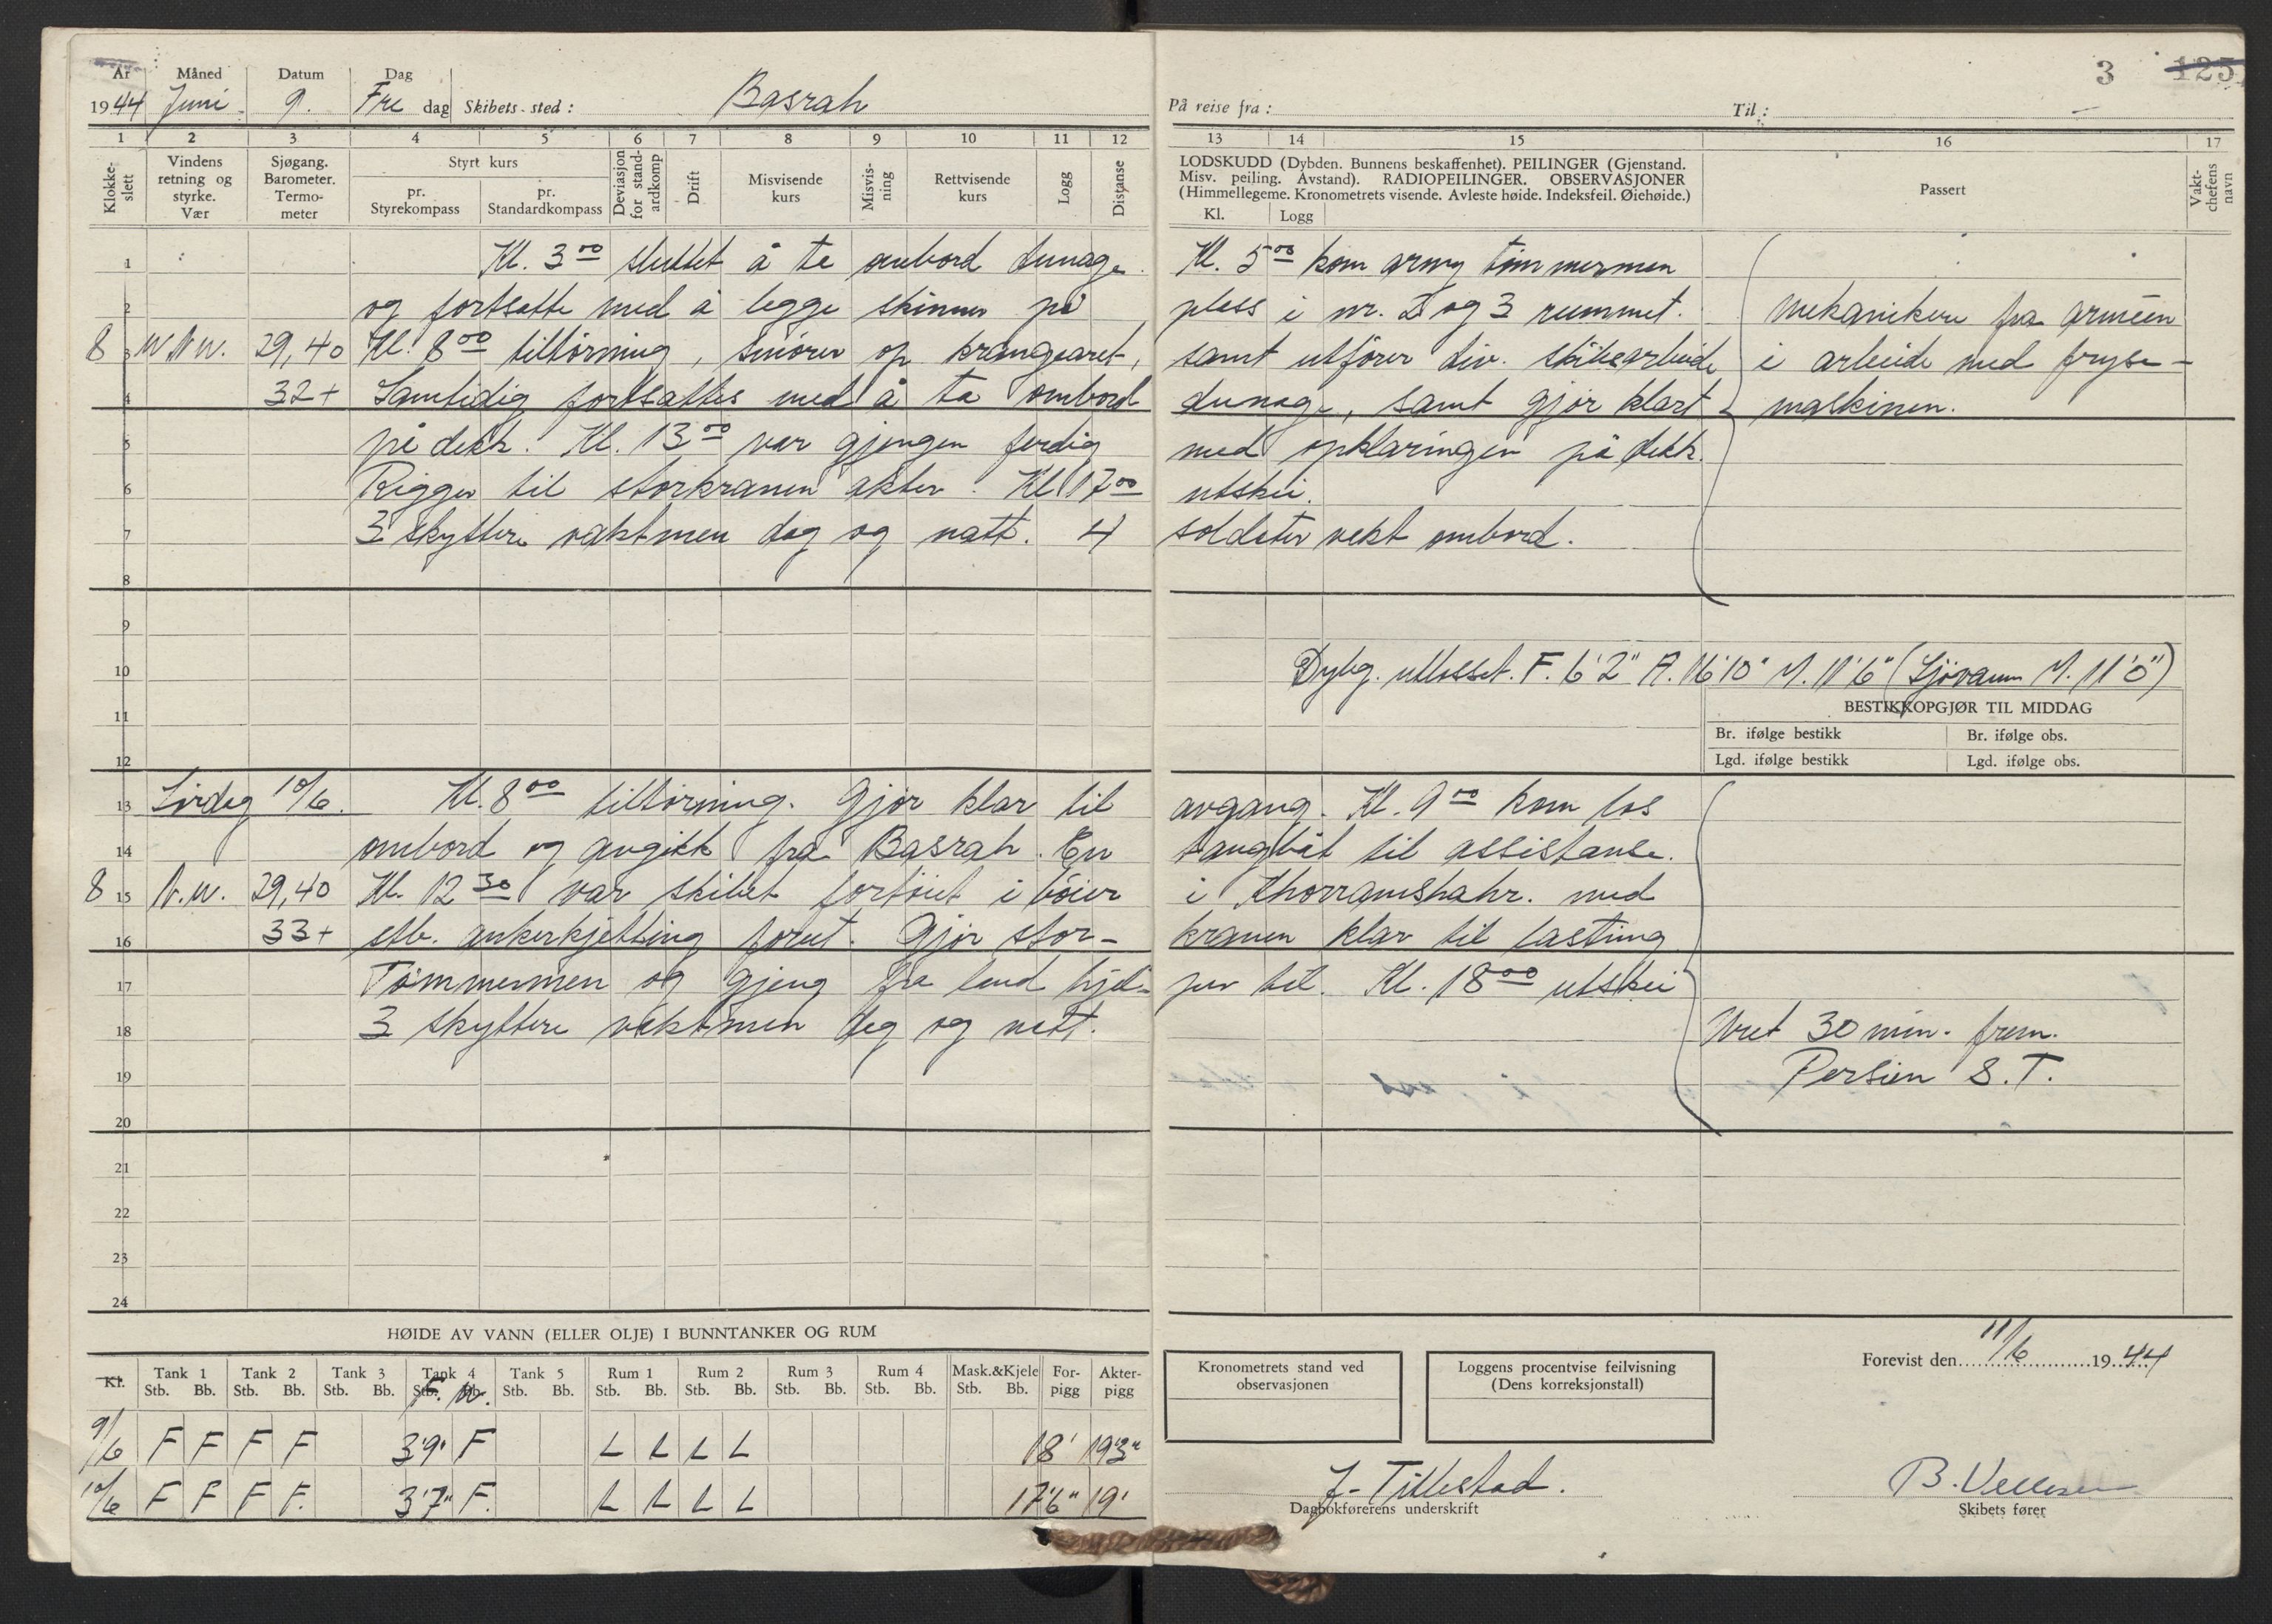 3 125
År Måned Datum Dag
1944 Juni 9. Fre dag Skibets sted: Basrah På reise fra: Til: —
1 2 3 4 5 6 7 8 9 10 11 12 13 14 15 16 17
Klokkeslett
Vindens retning og styrke. Vær
Sjøgang. Barometer. Termometer
Styrt kurs
pr. Styrekompass
pr. Standardkompass
Deviasjon for standardkomp
Drift
Misvisende kurs
Misvisning
Rettvisende kurs
Logg
Distanse
LODSKUDD (Dybden. Bunnens beskaffenhet). PEILINGER (Gjenstand.
Misv. peiling. Avstand). RADIOPEILINGER. OBSERVASJONER
(Himmellegeme. Kronometrets visende. Avleste høide. Indeksfeil. Øiehøide.)
Kl. Logg
Passert
Vaktchefens navn
1 Kl. 3 00 sluttet å ta ombord dunage. Kl. 5 00 kom army tømmermen
2 og fortsatte med å legge skinner på pless i nr. 2 og 3 rummet. Mekanikere fra arméen
8 3 WNW. 29,40 Kl. 8 00 tilltørning, smører op krangearet, samt utfører div. skibsarbeide i arbeide med fryse-
4 32+ Samtidig fortsattes med å ta ombord dunage, samt gjør klart maskinen.
5 på dekk. Kl. 13 00 var gjengen ferdig med opklaringen på dekk.
6 Rigger til storkranen akter. Kl 17 00 utskei.
7 3 skyttere vaktmen dag og natt. 4 soldater vakt ombord.
8
9
10 Dybg. utlosset. F. 6'2" A. 16'10" M. 11'6" (Sjøvann M. 11'0")
11 BESTIKKOPGJØR TIL MIDDAG
Br. ifølge bestikk Br. ifølge obs.
12 Lgd. ifølge bestikk Lgd. ifølge obs.
13 Lørdag 10/6. Kl. 8 00 tilltørning. Gjør klar til avgang. Kl. 9 00 kom los
14 ombord og avgikk fra Basrah. En taugbåt til assistanse.
8 15 N.W. 29,40 Kl. 12 30 var skibet fortøiet i bøier i Khorramshahr. med
16 33+ stb. ankerkjetting forut. Gjør stor- kranen klar til lasting
17 Tømmermen og gjeng fra land hjel- per til. Kl. 18 00 utskei
18 3 skyttere vaktmen dag og natt. Uret 30 min. frem.
19 Persien S.T.
20
21
22
23
24
HØIDE AV VANN (ELLER OLJE) I BUNNTANKER OG RUM
Kl. Tank 1 Tank 2 Tank 3 Tank 4 Tank 5 Rum 1 Rum 2 Rum 3 Rum 4 Mask.&Kjele For- Akter-
Stb. Bb. Stb. Bb. Stb. Bb. Stb. Bb. Stb. Bb. Stb. Bb. Stb. Bb. Stb. Bb. Stb. Bb. Stb. Bb. pigg pigg
F. W.
9/6 F F F F 3'9" F L L L L 18' 19'3"
10/6 F F F F. 3'7" F. L L L L 17'6" 19'
Kronometrets stand ved observasjonen
Loggens procentvise feilvisning
(Dens korreksjonstall)
Forevist den 11/6 1944
J. Tillestad.
Dagbokførerens underskrift
B.
Skibets fører